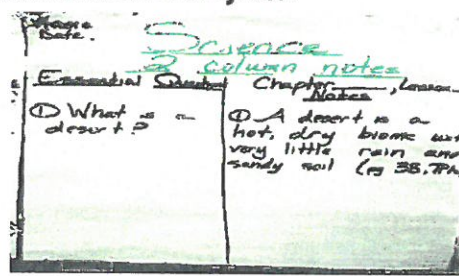 Name
Date.
Science
2 column notes
Essential Question
Chapter____, Lesson
Notes
① What is a
desert?
① A desert is a
hot, dry biome with
very little rain and
sandy soil (pg 38,